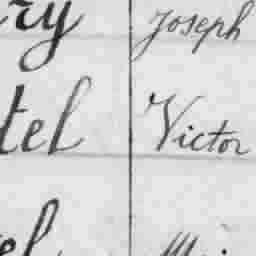 ry Joseph
tel Victor
el